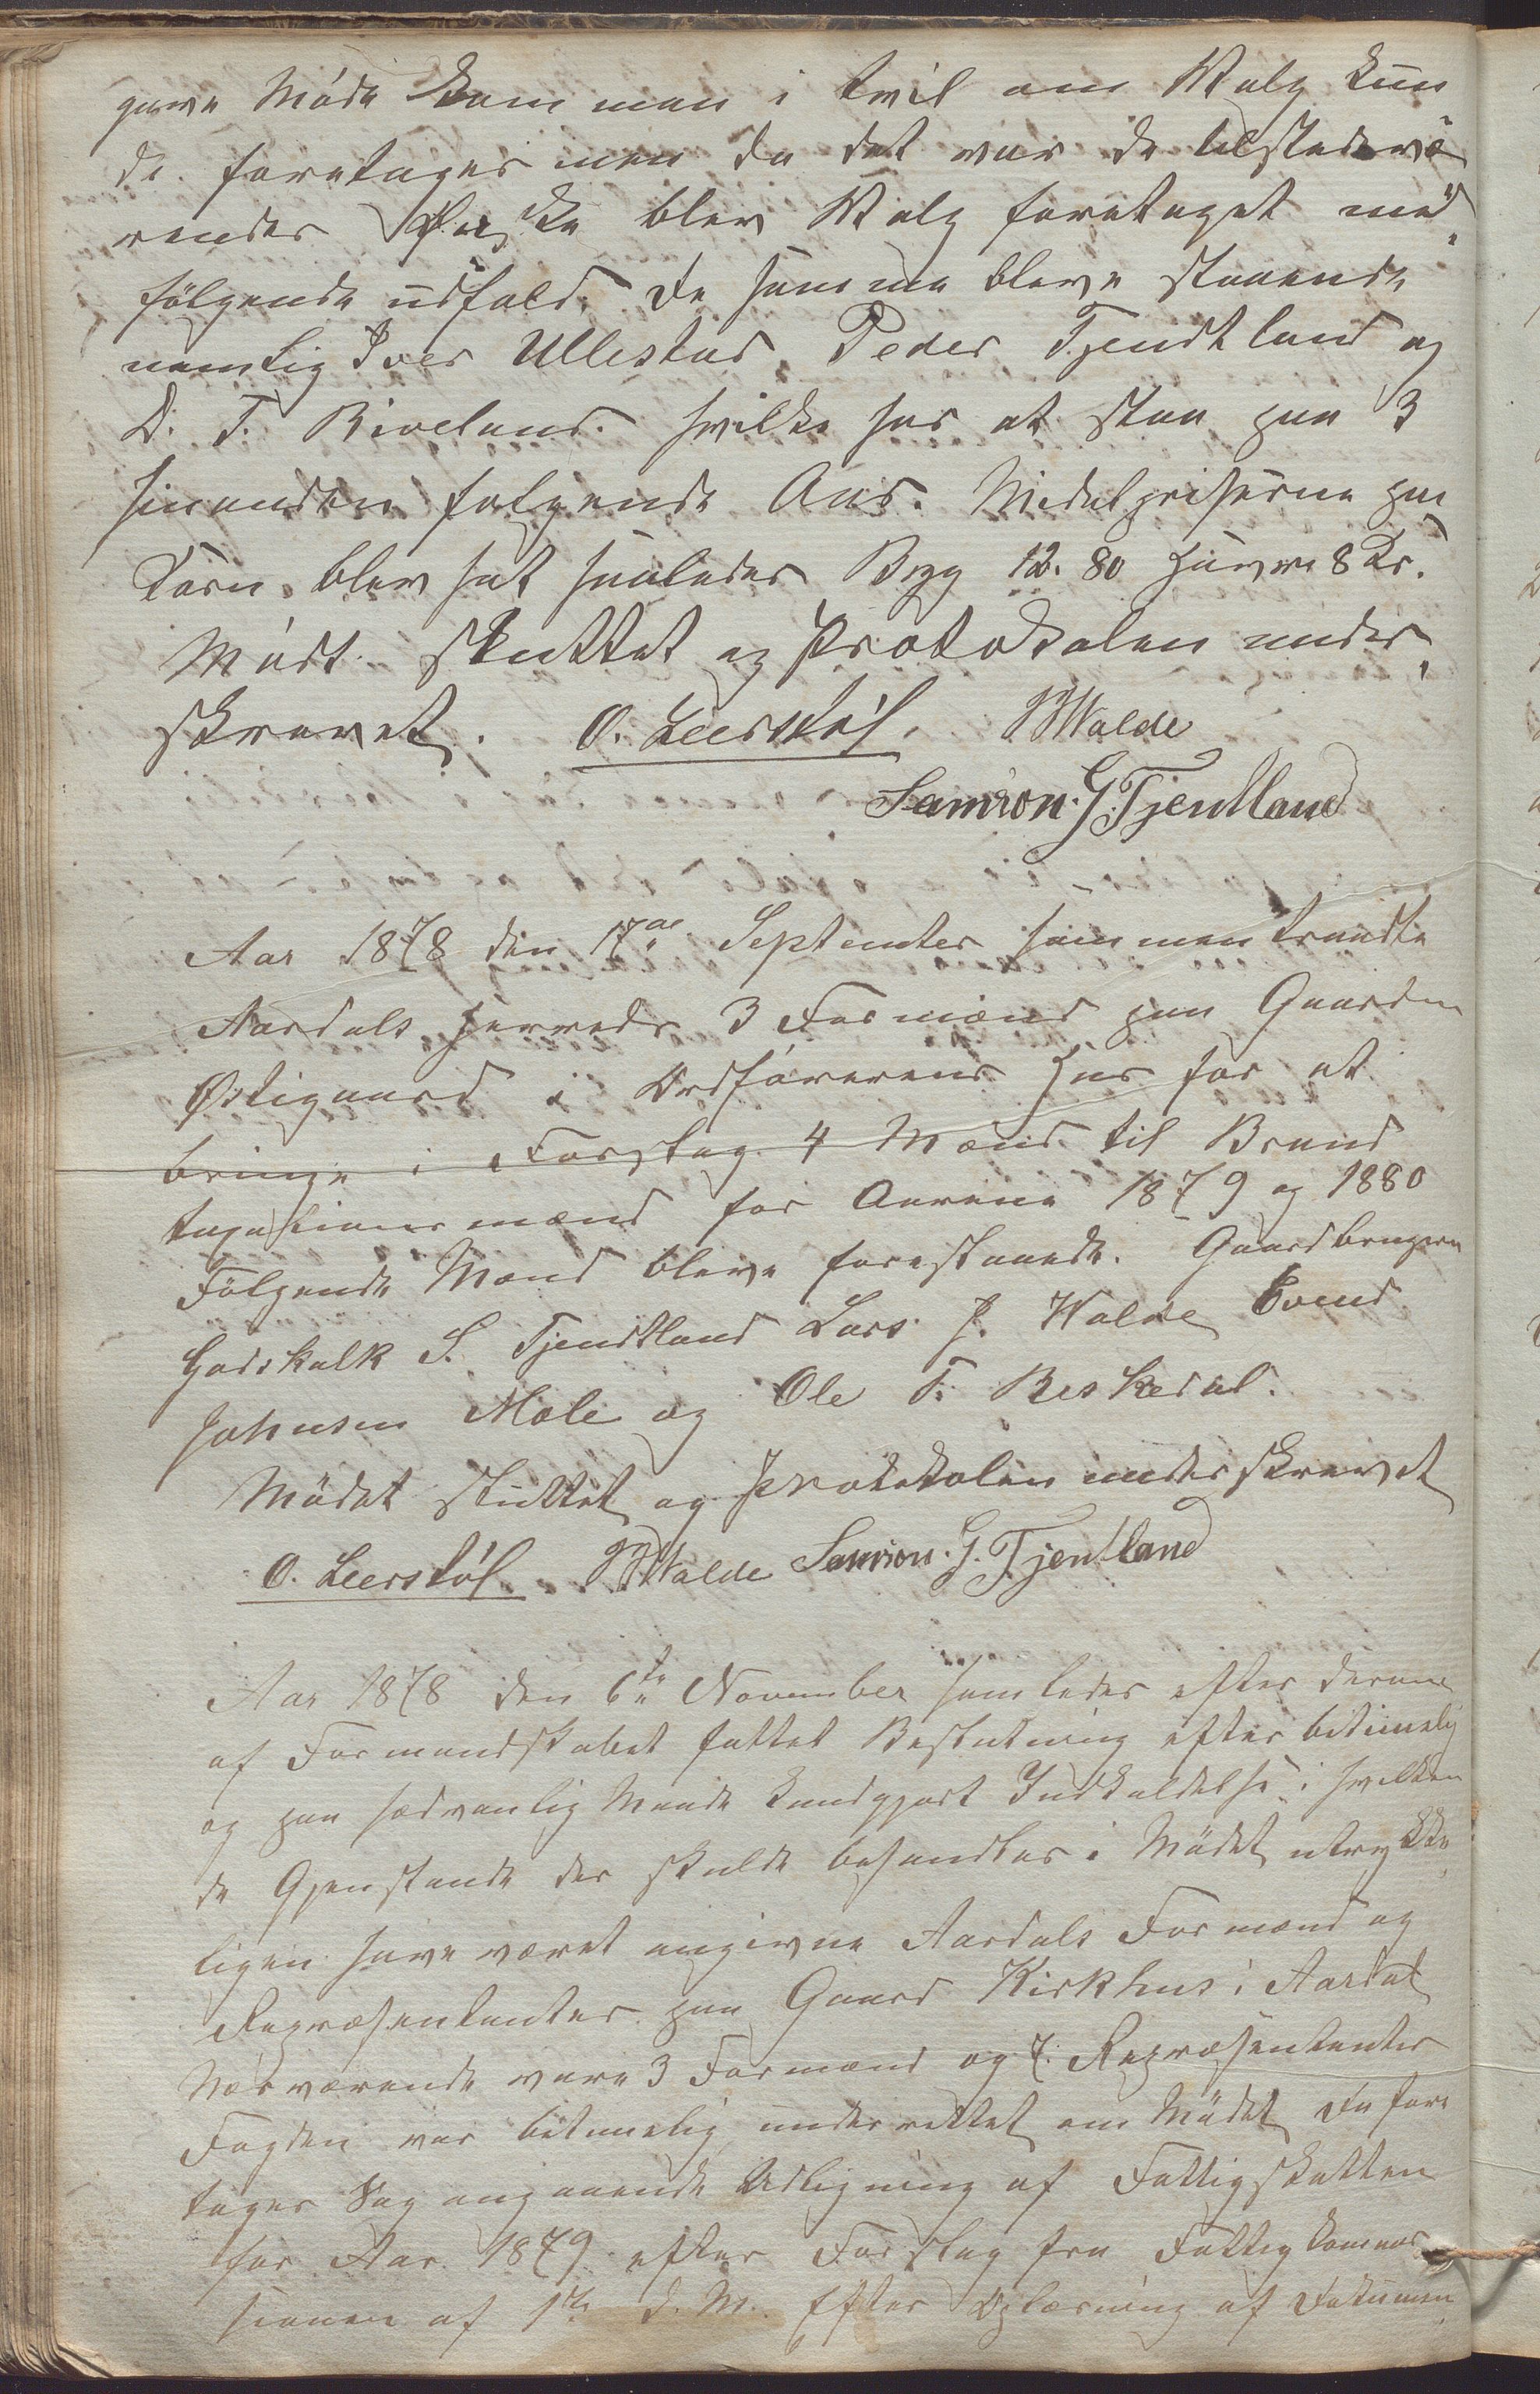 gave Möde kom man i tvil om Valg kun
de foretages men da det var de tilstedevæ
rendes Ønske blev Valg foretaget med
fölgende udfald. De samme bleve staaende
nemlig Iver Ullestad Peder Tjendtland og
D. T. Riveland. hvilke har at staa paa 3
hinanden folgende Aar. Medelpriserne paa
Korn blev sat saaledes Byg 12.80 Havre 8 Kr.
Mödt sluttet og Protokolen under
skrevet. O. Leersköl. Valde
Samson. G. Tjentland
Aar 1878 den 17de September sammentraadte
Aardals Herreds 3 Formænd paa Gaarden
Østigaard i Ordförerens Hus for at
bringe i Forslag 4 Mænd til Brand
taxasionsmænd for Aarene 1879 og 1880
Fölgende Mænd bleve foreslaaede. Gaardbrugerne
Godskalk S. Tjendtland Lars J. Valde Svend
Johnsen Mæle og Ole T. Reskedal.
Mödet sluttet og Protokolen underskrevet
O. Leersköl. Valde Samson. G. Tjentland
Aar 1878 den 6te November samledes efter derom
af Formandskabet fattet Beslutning efter betimelig
og paa sædvanlig Maade kundgjort Indkaldelse i hvilken
de Gjenstande der skulde behandles i Mödet utrykke
ligen have været angivne Aardals Formænd og
Repræsentanter paa Gaard Kirkhus i Aardal
Nærværende vare 3 Formænd og 7 Repræsentanter
Fogden var betimelig underrettet om Mödet Da fore
tages Sag angaaende Udligning af Fattigskatten
for Aar 1879 efter Forslag fra Fattigkommis
sionen af 1te d. M. Efter Oplæsning af Dokumen